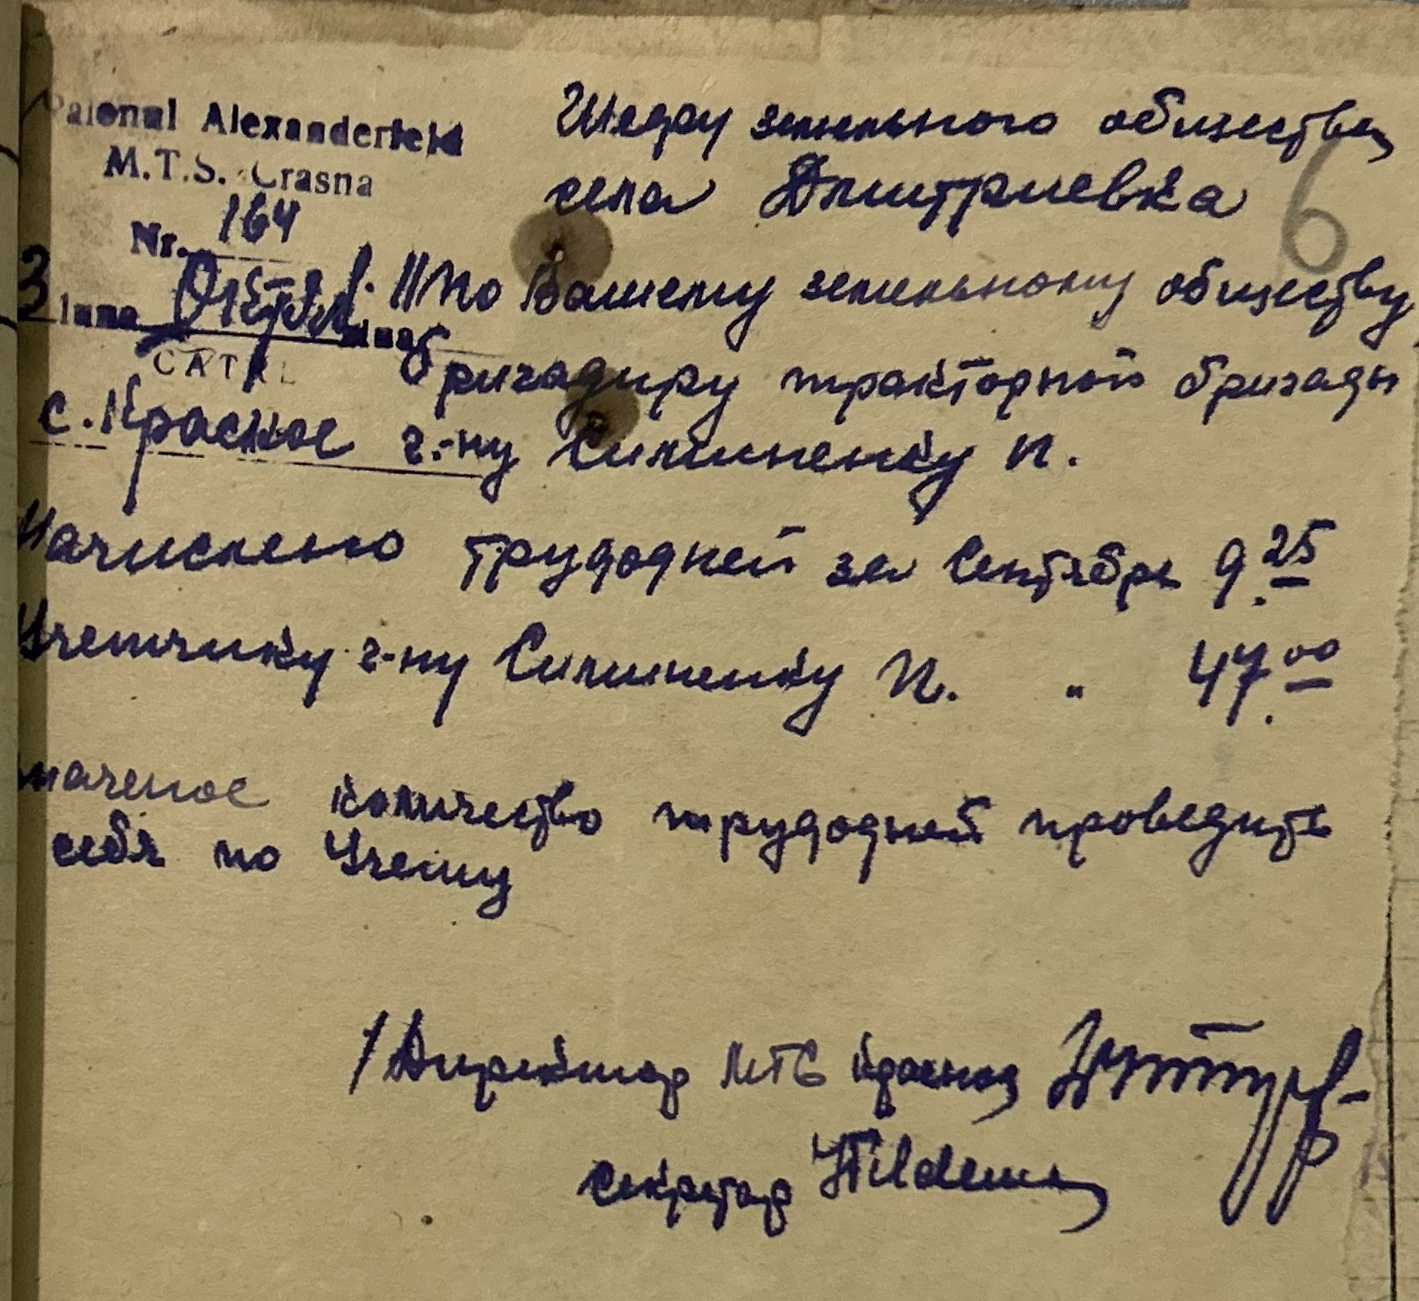 Raionul Alexanderfeld
M.T.S. Crasna
Nr. 164
3
luna
CATRE
с. Красное
Шефу земельного общества
села Дмитриевка
6
По Вашему земельному обществу
бригадиру тракторной бригады
г-ну Силиненку П.
Начислено трудодней за Сентябрь 9.25
Учетчику г-ну Силиненку П. " 47.00
значеное количество трудодней проведить
себя по Учету
/Директор МТС Красная
секретар